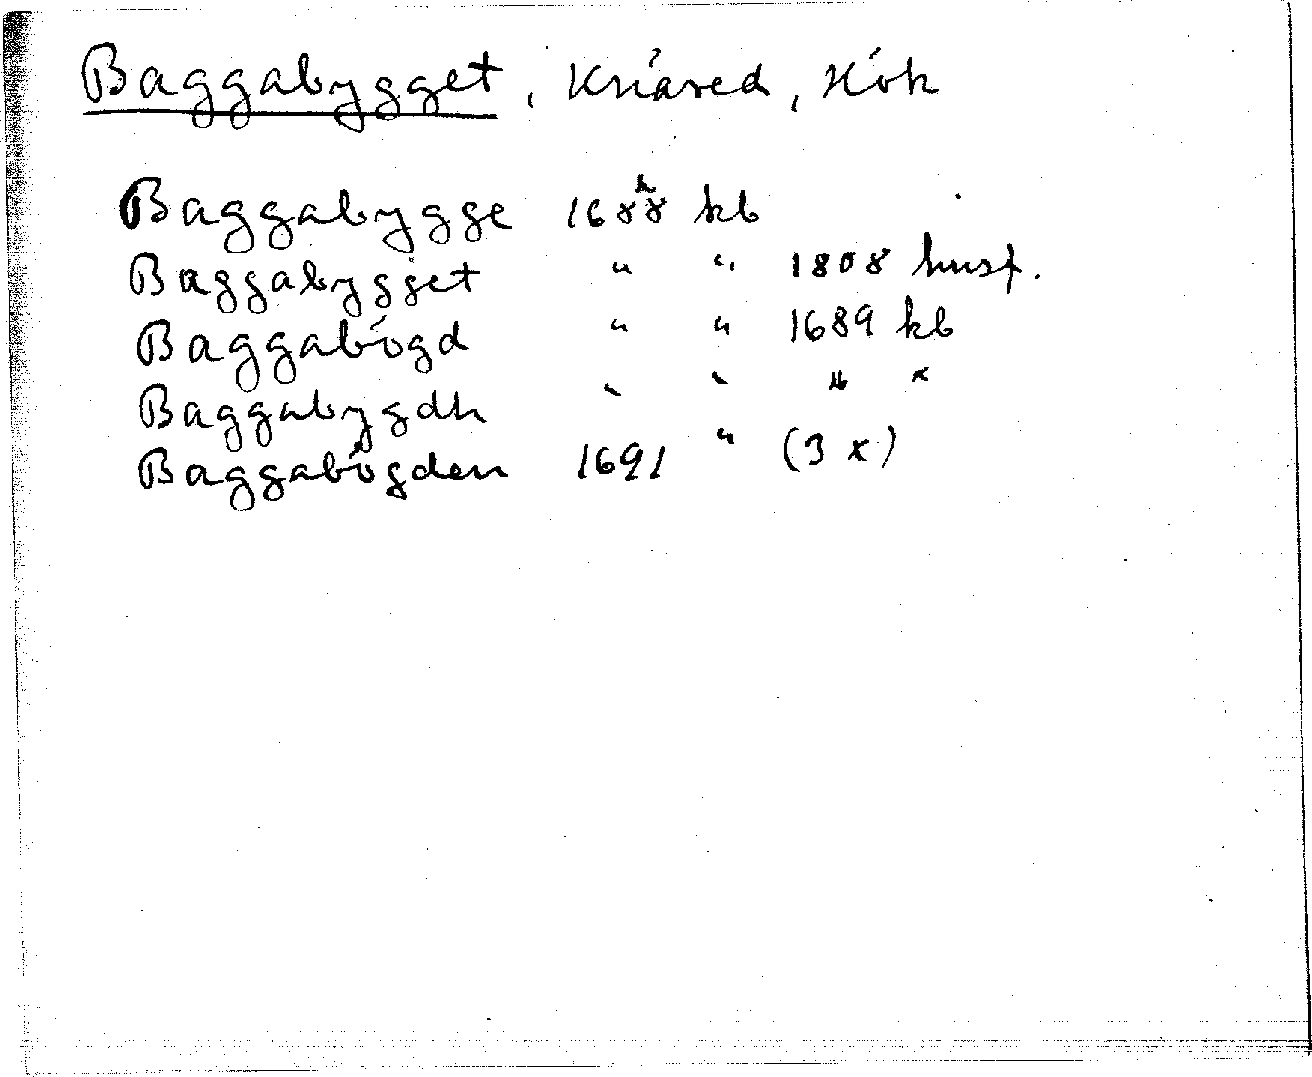 Baggabygget, Knäred, Hök
Baggabygge 1688 kb
Baggabygget " " 1808 husf.
Baggabögd " " 1689 kb
Baggabygdh " " " "
Baggabögden 1691 " (3 x)